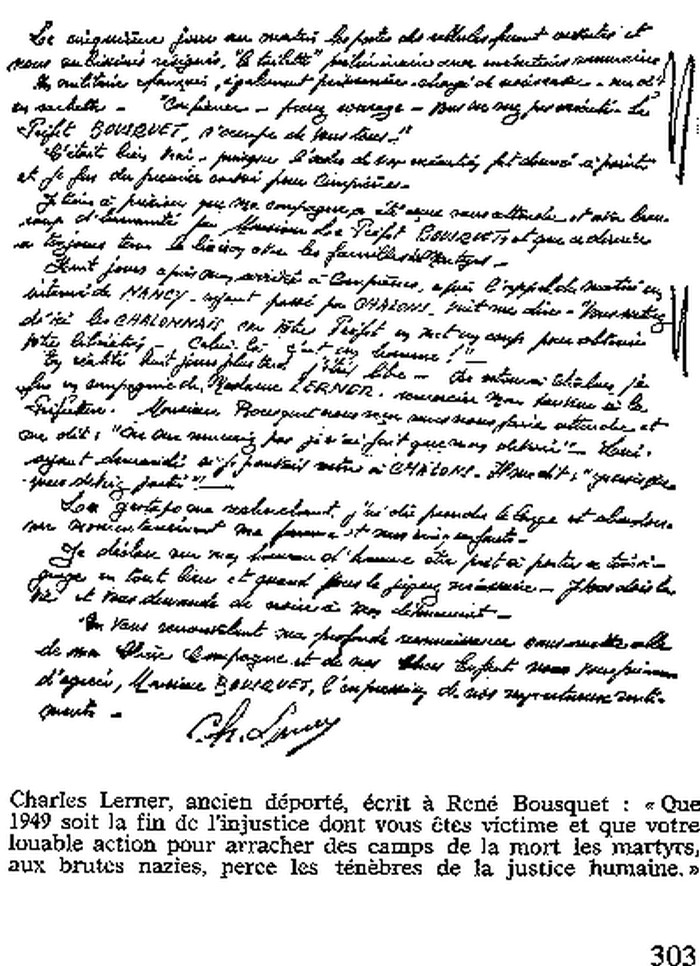 Le cinquième jour au matin les portes des cellules furent ouvertes et
nous subissions résignés, "la toilette" préliminaire aux exécutions sommaires
Un militaire français, également prisonnier chargé de me dit
en cachette - "Compiègne - prenez courage - vous ne serez pas exécutés. Le
Préfet BOUSQUET, s'occupe de vous tous!"
C'était bien vrai - puisque l'ordre de nos exécutions fut donné à
et je fus du premier convoi pour Compiègne.
Je tiens à préciser que ma compagne, a été reçue sans attendre et avec beau-
coup d'humanité par Monsieur Le Préfet BOUSQUET, et que ce dernier
a toujours tenu la liaison avec les familles des Martyrs -
Huit jours après mon arrivée à Compiègne, après l'appel du matin un
interné de NANCY - ayant passé par CHALONS - vint me dire - "Vous sortez
d'ici les CHALONNAIS, car votre Préfet en met un coup pour obtenir
votre libération - Celui-là c'est un homme!"
En réalité huit jours plus tard j'étais libre - De retour à Chalons, je
fus en compagnie de Madame LERNER, remercier mon sauveur à la
Préfecture. Monsieur Bousquet nous reçu sans nous faire attendre et
me dit: "On me remerciez pas je n'ai fait que mon devoir" - Lui
ayant demandé si je pouvais rester à CHALONS. Il me dit: "
partir"
La gestapo me recherchant, j'ai dû prendre le large et abandon-
ner momentanément ma femme et mes enfants.
Je déclare sur mon honneur d'homme être prêt à porter ce témoi-
gnage en tout lieu et quand vous le jugez nécessaire - Je vous dois la
vie et vous demande de croire à mon dévouement -
En vous renouvelant ma profonde reconnaissance
de ma Chère Compagne et de nos Chers Enfants nous vous prions
d'agréer, Monsieur BOUSQUET, l'expression de nos respectueux senti-
ments -
Ch. Lerner
Charles Lerner, ancien déporté, écrit à René Bousquet : « Que
1949 soit la fin de l'injustice dont vous êtes victime et que votre
louable action pour arracher des camps de la mort les martyrs,
aux brutes nazies, perce les ténèbres de la justice humaine. »
303